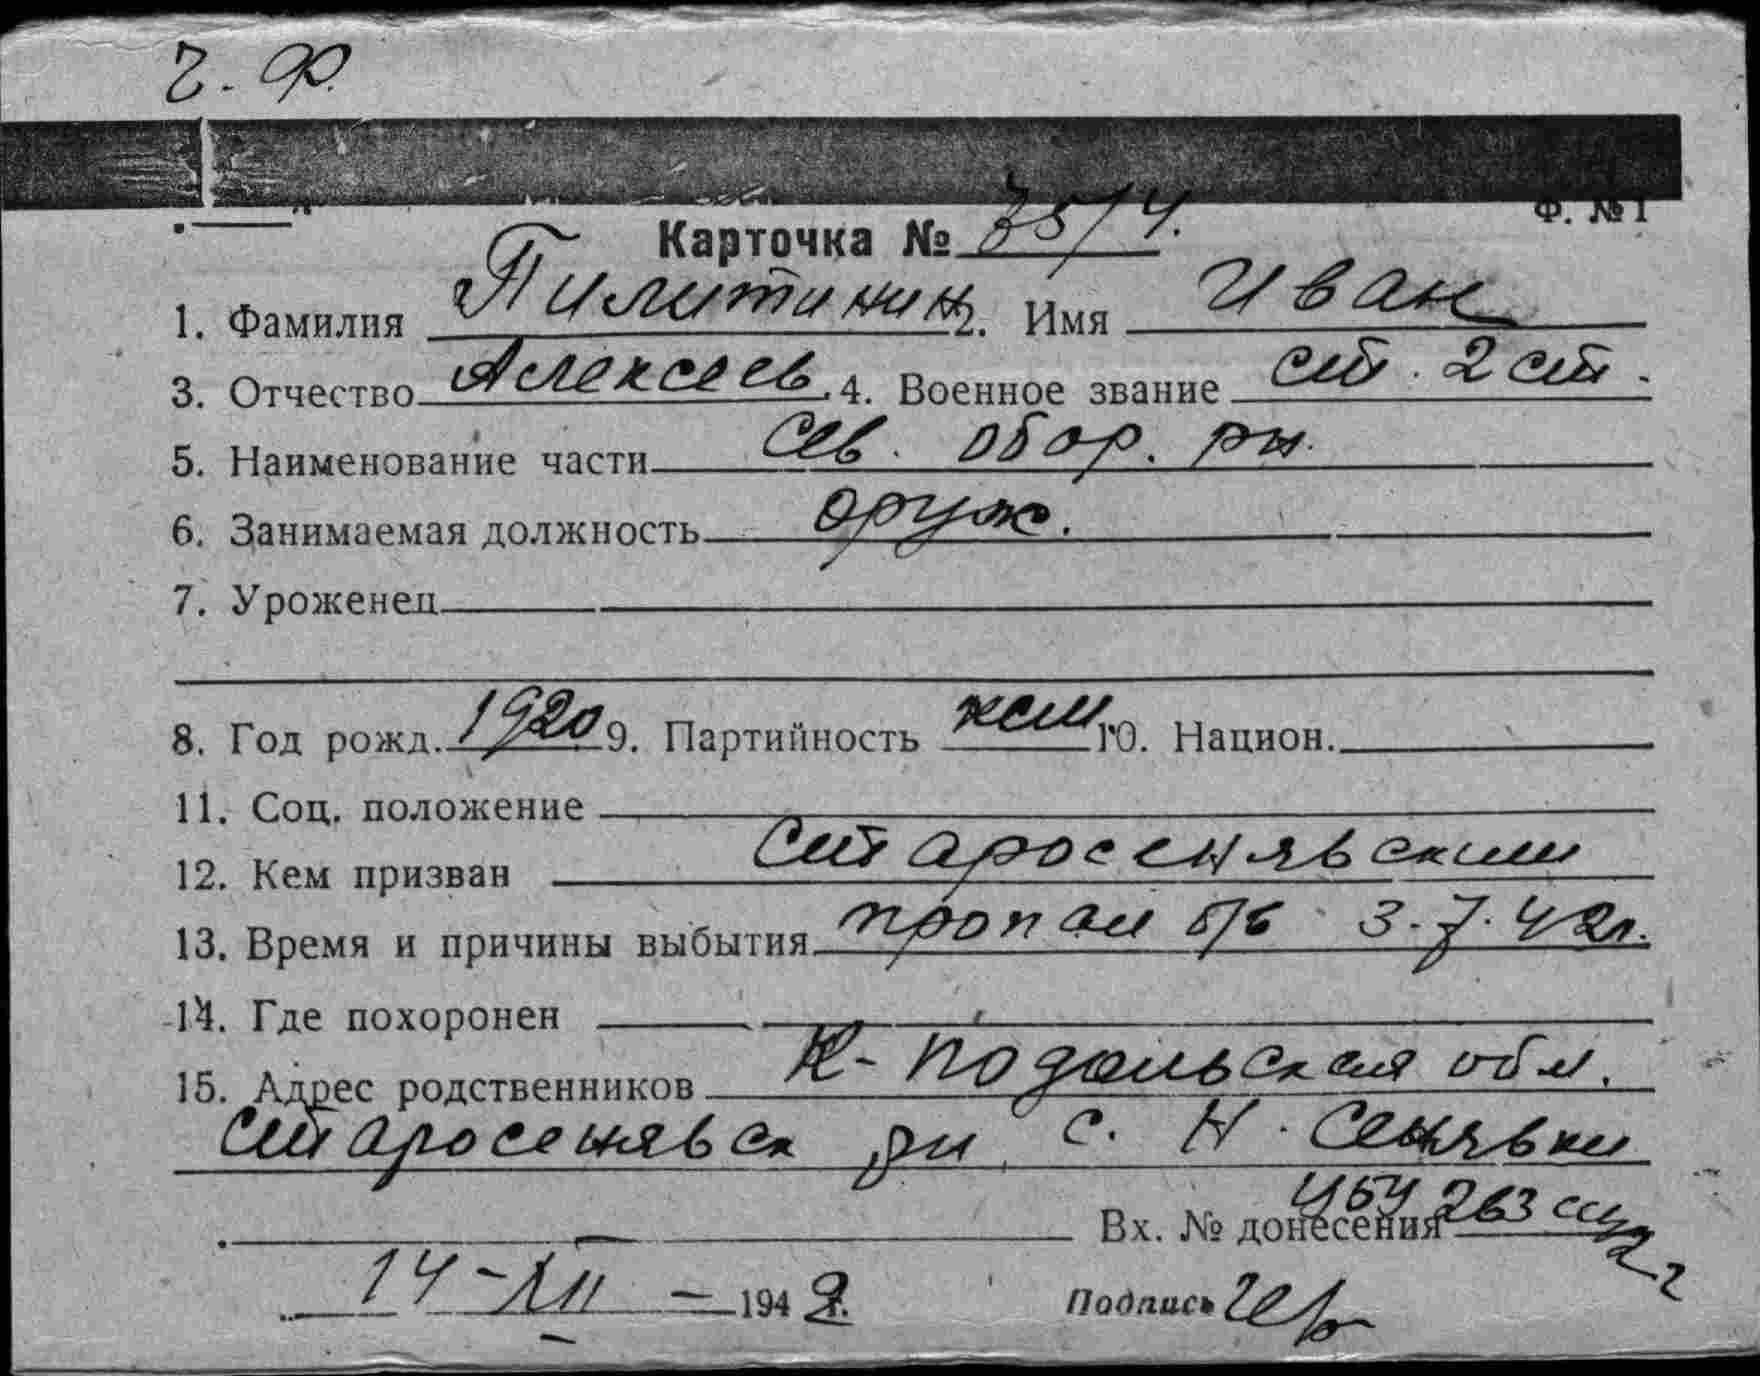 Ч. Ф.
Ф. № 1
Карточка № 7514.
1. Фамилия Пилитинин 2. Имя Иван
3. Отчество Алексеев. 4. Военное звание ст. 2 ст.
5. Наименование части Сев. обор. рн.
6. Занимаемая должность оруж.
7. Уроженец
8. Год рожд. 1920 9. Партийность ксм 10. Национ.
11. Соц. положение
12. Кем призван Старосенявским
13. Время и причины выбытия пропал б/в 3.7.42г.
14. Где похоронен
15. Адрес родственников К-Подольская обл.
Старосенявск рн, с. Н. Сенявки
Вх. № донесения 263
14-XII-1942г. Подпись